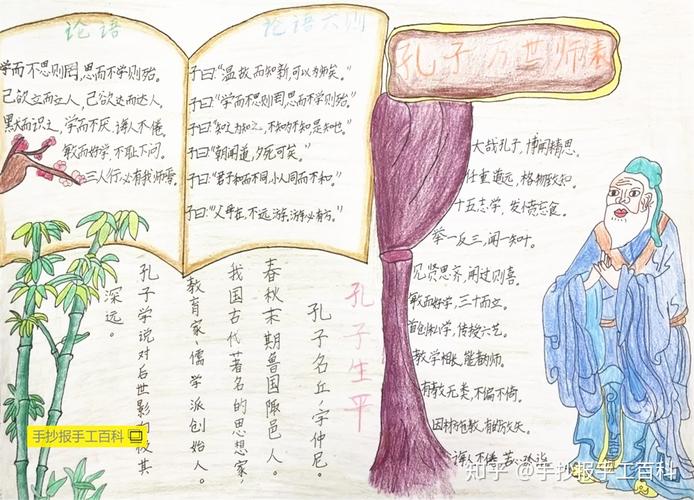 论语
学而不思则罔,思而不学则殆。
己欲立而立人,己欲达而达人。
默而识之,学而不厌,诲人不倦。
敏而好学,不耻下问。
三人行,必有我师焉。
论语六则
子曰:“温故而知新,可以为师矣。”
子曰:“学而不思则罔,思而不学则殆。”
子曰:“知之为知之,不知为不知是知也。”
子曰:“朝闻道,夕死可矣。”
子曰:“君子和而不同,小人同而不和。”
子曰:“父母在,不远游,游必有方。”
孔子万世师表
孔子,博闻精思。
任重道远,格物致知。
十五志学,发愤忘食。
举一反三,闻一知
见贤思齐,闻过则喜。
敏而好学,三十而立。
首创私学,传授六艺。
教学相长,能者师。
有教无类,不偏不倚。
因材施教,有的放矢。
诲人不倦,
孔子生平
孔子名丘,字仲尼。
春秋末期鲁国陬邑人。
我国古代著名的思想家,
教育家、儒学派创始人。
孔子学说对后世影响极其
深远。
手抄报手工百科
知乎 @手抄报手工百科